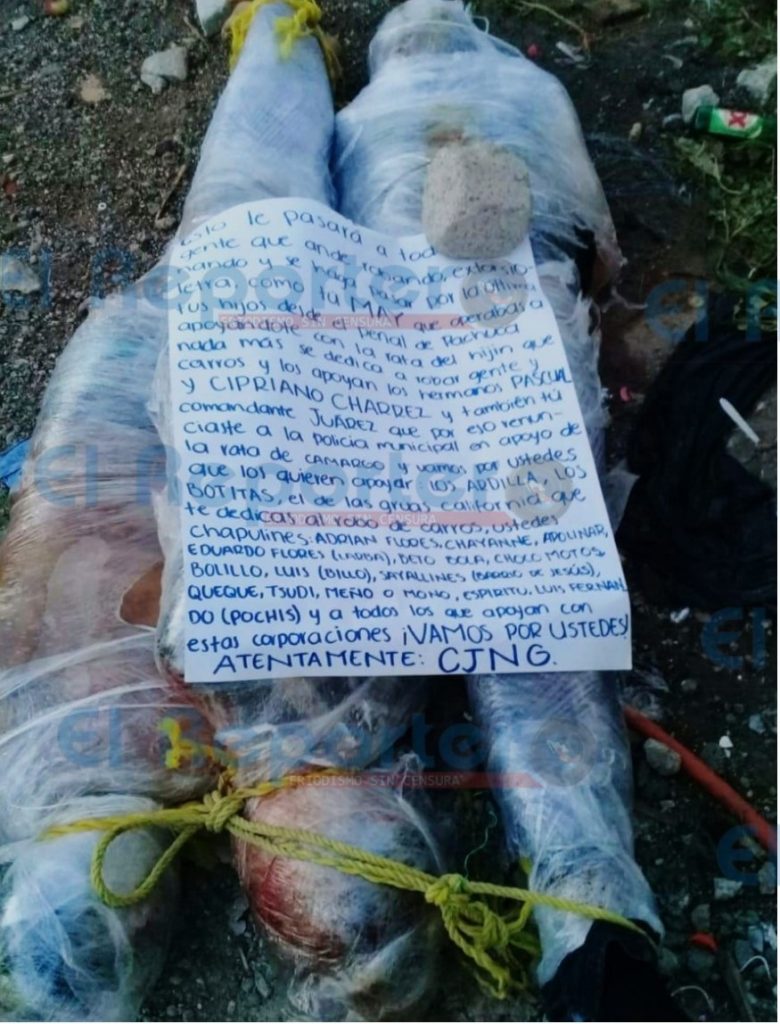 Esto le pasará a tod
gente que ande robando, extorsio-
nando y se haga pasar por la última
letra, como tú MAY que operabas a
tus hijos desde el penal de Pachuca
apoyándote con la rata del hijin que
nada más se dedica a robar gente y
carros y los apoyan los hermanos PASCUAL
y CIPRIANO CHARREZ y también tú
comandante JUÁREZ que por eso renun-
ciaste a la policía municipal en apoyo de
la rata de CAMARGO y vamos por ustedes
que los quieren apoyar, LOS ARDILLA, LOS
BOTITAS, el de las gruas california que
te dedicas al robo de carros, ustedes
chapulines: ADRIAN FLORES, CHAYANNE, APOLINAR,
EDUARDO FLORES (LABIA), BETO BOLA, CHOCO MOTOS
BOLILLO, LUIS (BILLO), SAYALLINES (BARRIO DE JESÚS),
QUEQUE, TSUDI, MEÑO O MONO, ESPIRITU, LUIS FERNAN
DO (POCHIS) y a todos los que apoyan con
estas corporaciones ¡VAMOS POR USTEDES!
ATENTAMENTE: CJNG.
El Reportero
PERIODISMO SIN CENSURA